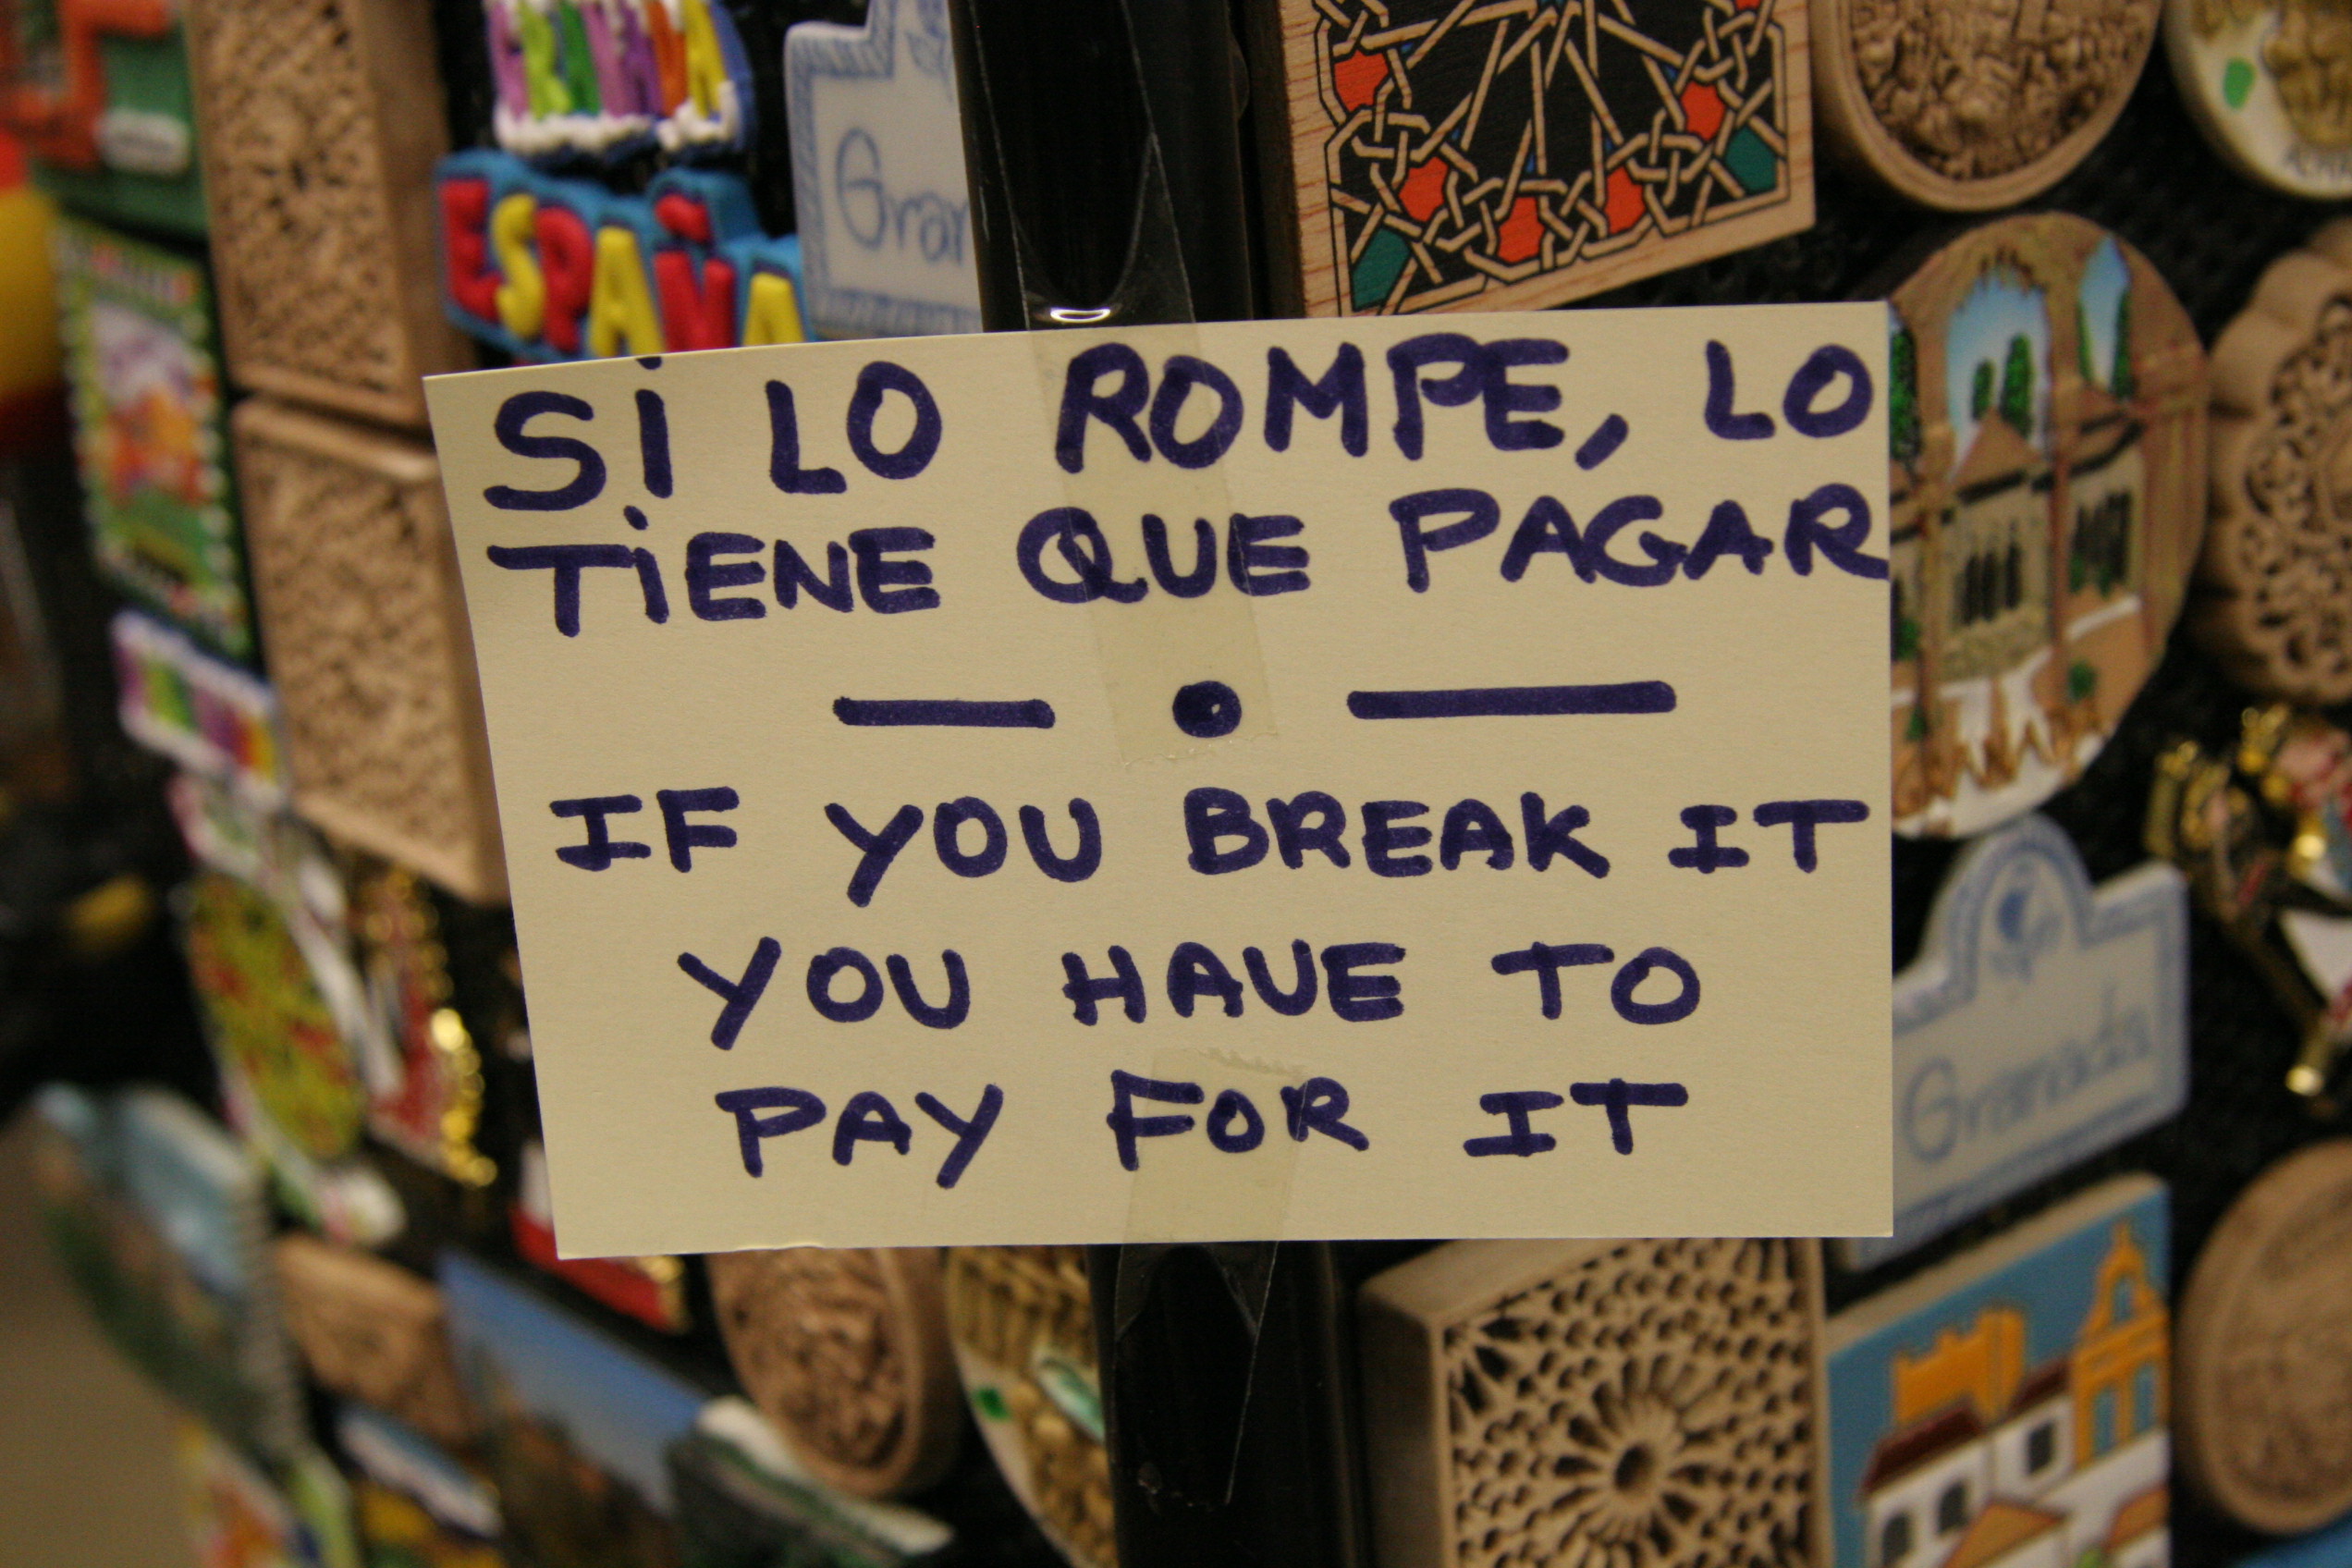 ESPAÑA
Gran
SI LO ROMPE, LO
TIENE QUE PAGAR
— • —
IF YOU BREAK IT
YOU HAVE TO
PAY FOR IT
Granada